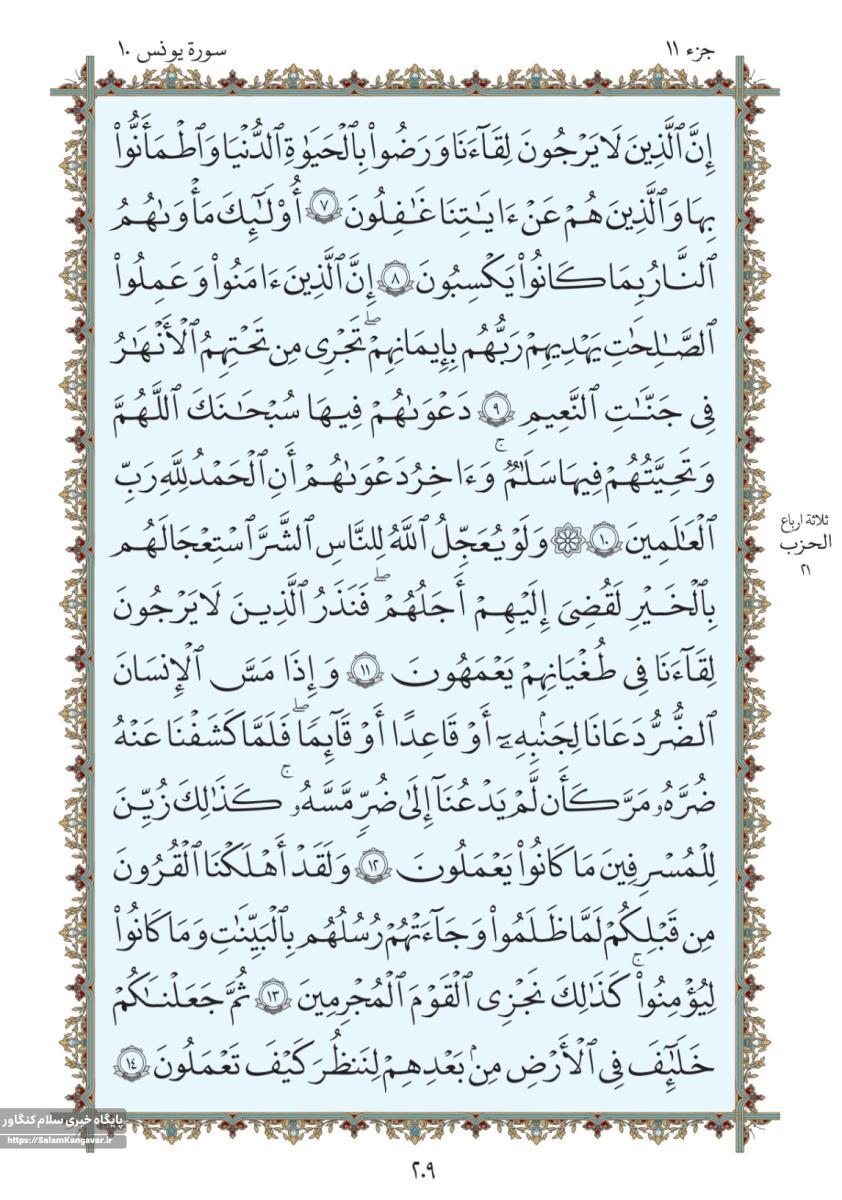 جزء ۱۱
سورة يونس ۱۰
إِنَّ ٱلَّذِينَ لَا يَرْجُونَ لِقَآءَنَا وَرَضُوا۟ بِٱلْحَيَوٰةِ ٱلدُّنْيَا وَٱطْمَأَنُّوا۟
بِهَا وَٱلَّذِينَ هُمْ عَنْ ءَايَٰتِنَا غَٰفِلُونَ ٧ أُو۟لَٰٓئِكَ مَأْوَىٰهُمُ
ٱلنَّارُ بِمَا كَانُوا۟ يَكْسِبُونَ ٨ إِنَّ ٱلَّذِينَ ءَامَنُوا۟ وَعَمِلُوا۟
ٱلصَّٰلِحَٰتِ يَهْدِيهِمْ رَبُّهُم بِإِيمَٰنِهِمْ ۖ تَجْرِى مِن تَحْتِهِمُ ٱلْأَنْهَٰرُ
فِى جَنَّٰتِ ٱلنَّعِيمِ ٩ دَعْوَىٰهُمْ فِيهَا سُبْحَٰنَكَ ٱللَّهُمَّ
وَتَحِيَّتُهُمْ فِيهَا سَلَٰمٌ ۚ وَءَاخِرُ دَعْوَىٰهُمْ أَنِ ٱلْحَمْدُ لِلَّهِ رَبِّ
ٱلْعَٰلَمِينَ ١٠ ۞ وَلَوْ يُعَجِّلُ ٱللَّهُ لِلنَّاسِ ٱلشَّرَّ ٱسْتِعْجَالَهُم
بِٱلْخَيْرِ لَقُضِىَ إِلَيْهِمْ أَجَلُهُمْ ۖ فَنَذَرُ ٱلَّذِينَ لَا يَرْجُونَ
لِقَآءَنَا فِى طُغْيَٰنِهِمْ يَعْمَهُونَ ١١ وَإِذَا مَسَّ ٱلْإِنسَٰنَ
ٱلضُّرُّ دَعَانَا لِجَنۢبِهِۦٓ أَوْ قَاعِدًا أَوْ قَآئِمًا ۖ فَلَمَّا كَشَفْنَا عَنْهُ
ضُرَّهُۥ مَرَّ كَأَن لَّمْ يَدْعُنَآ إِلَىٰ ضُرٍّ مَّسَّهُۥ ۚ كَذَٰلِكَ زُيِّنَ
لِلْمُسْرِفِينَ مَا كَانُوا۟ يَعْمَلُونَ ١٢ وَلَقَدْ أَهْلَكْنَا ٱلْقُرُونَ
مِن قَبْلِكُمْ لَمَّا ظَلَمُوا۟ وَجَآءَتْهُمْ رُسُلُهُم بِٱلْبَيِّنَٰتِ وَمَا كَانُوا۟
لِيُؤْمِنُوا۟ ۚ كَذَٰلِكَ نَجْزِى ٱلْقَوْمَ ٱلْمُجْرِمِينَ ١٣ ثُمَّ جَعَلْنَٰكُمْ
خَلَٰٓئِفَ فِى ٱلْأَرْضِ مِنۢ بَعْدِهِمْ لِنَنظُرَ كَيْفَ تَعْمَلُونَ ١٤
ثلاثة ارباع
الحزب
۲۱
پایگاه خبری سلام کنگاور
https://SalamKangavar.ir
۲۰۹